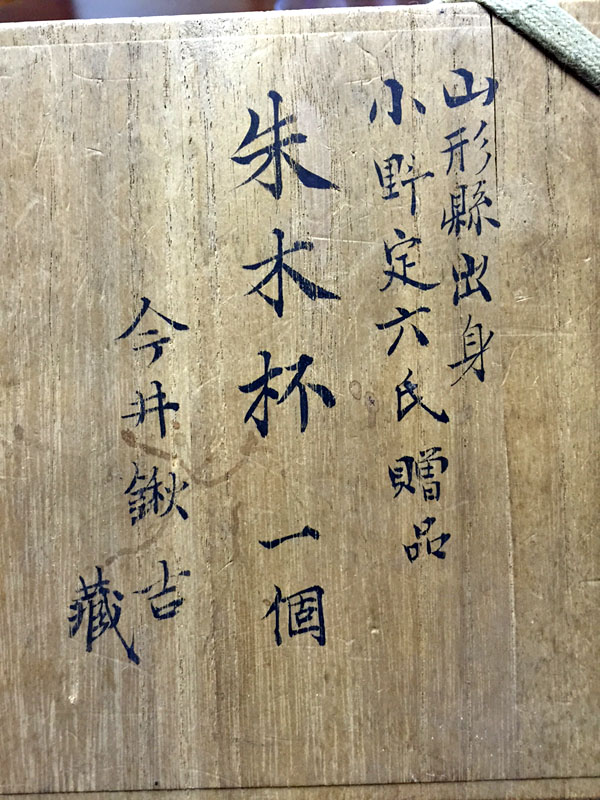 山形縣出身
小野定六氏贈品
朱木杯 一個
今井鍬吉
藏